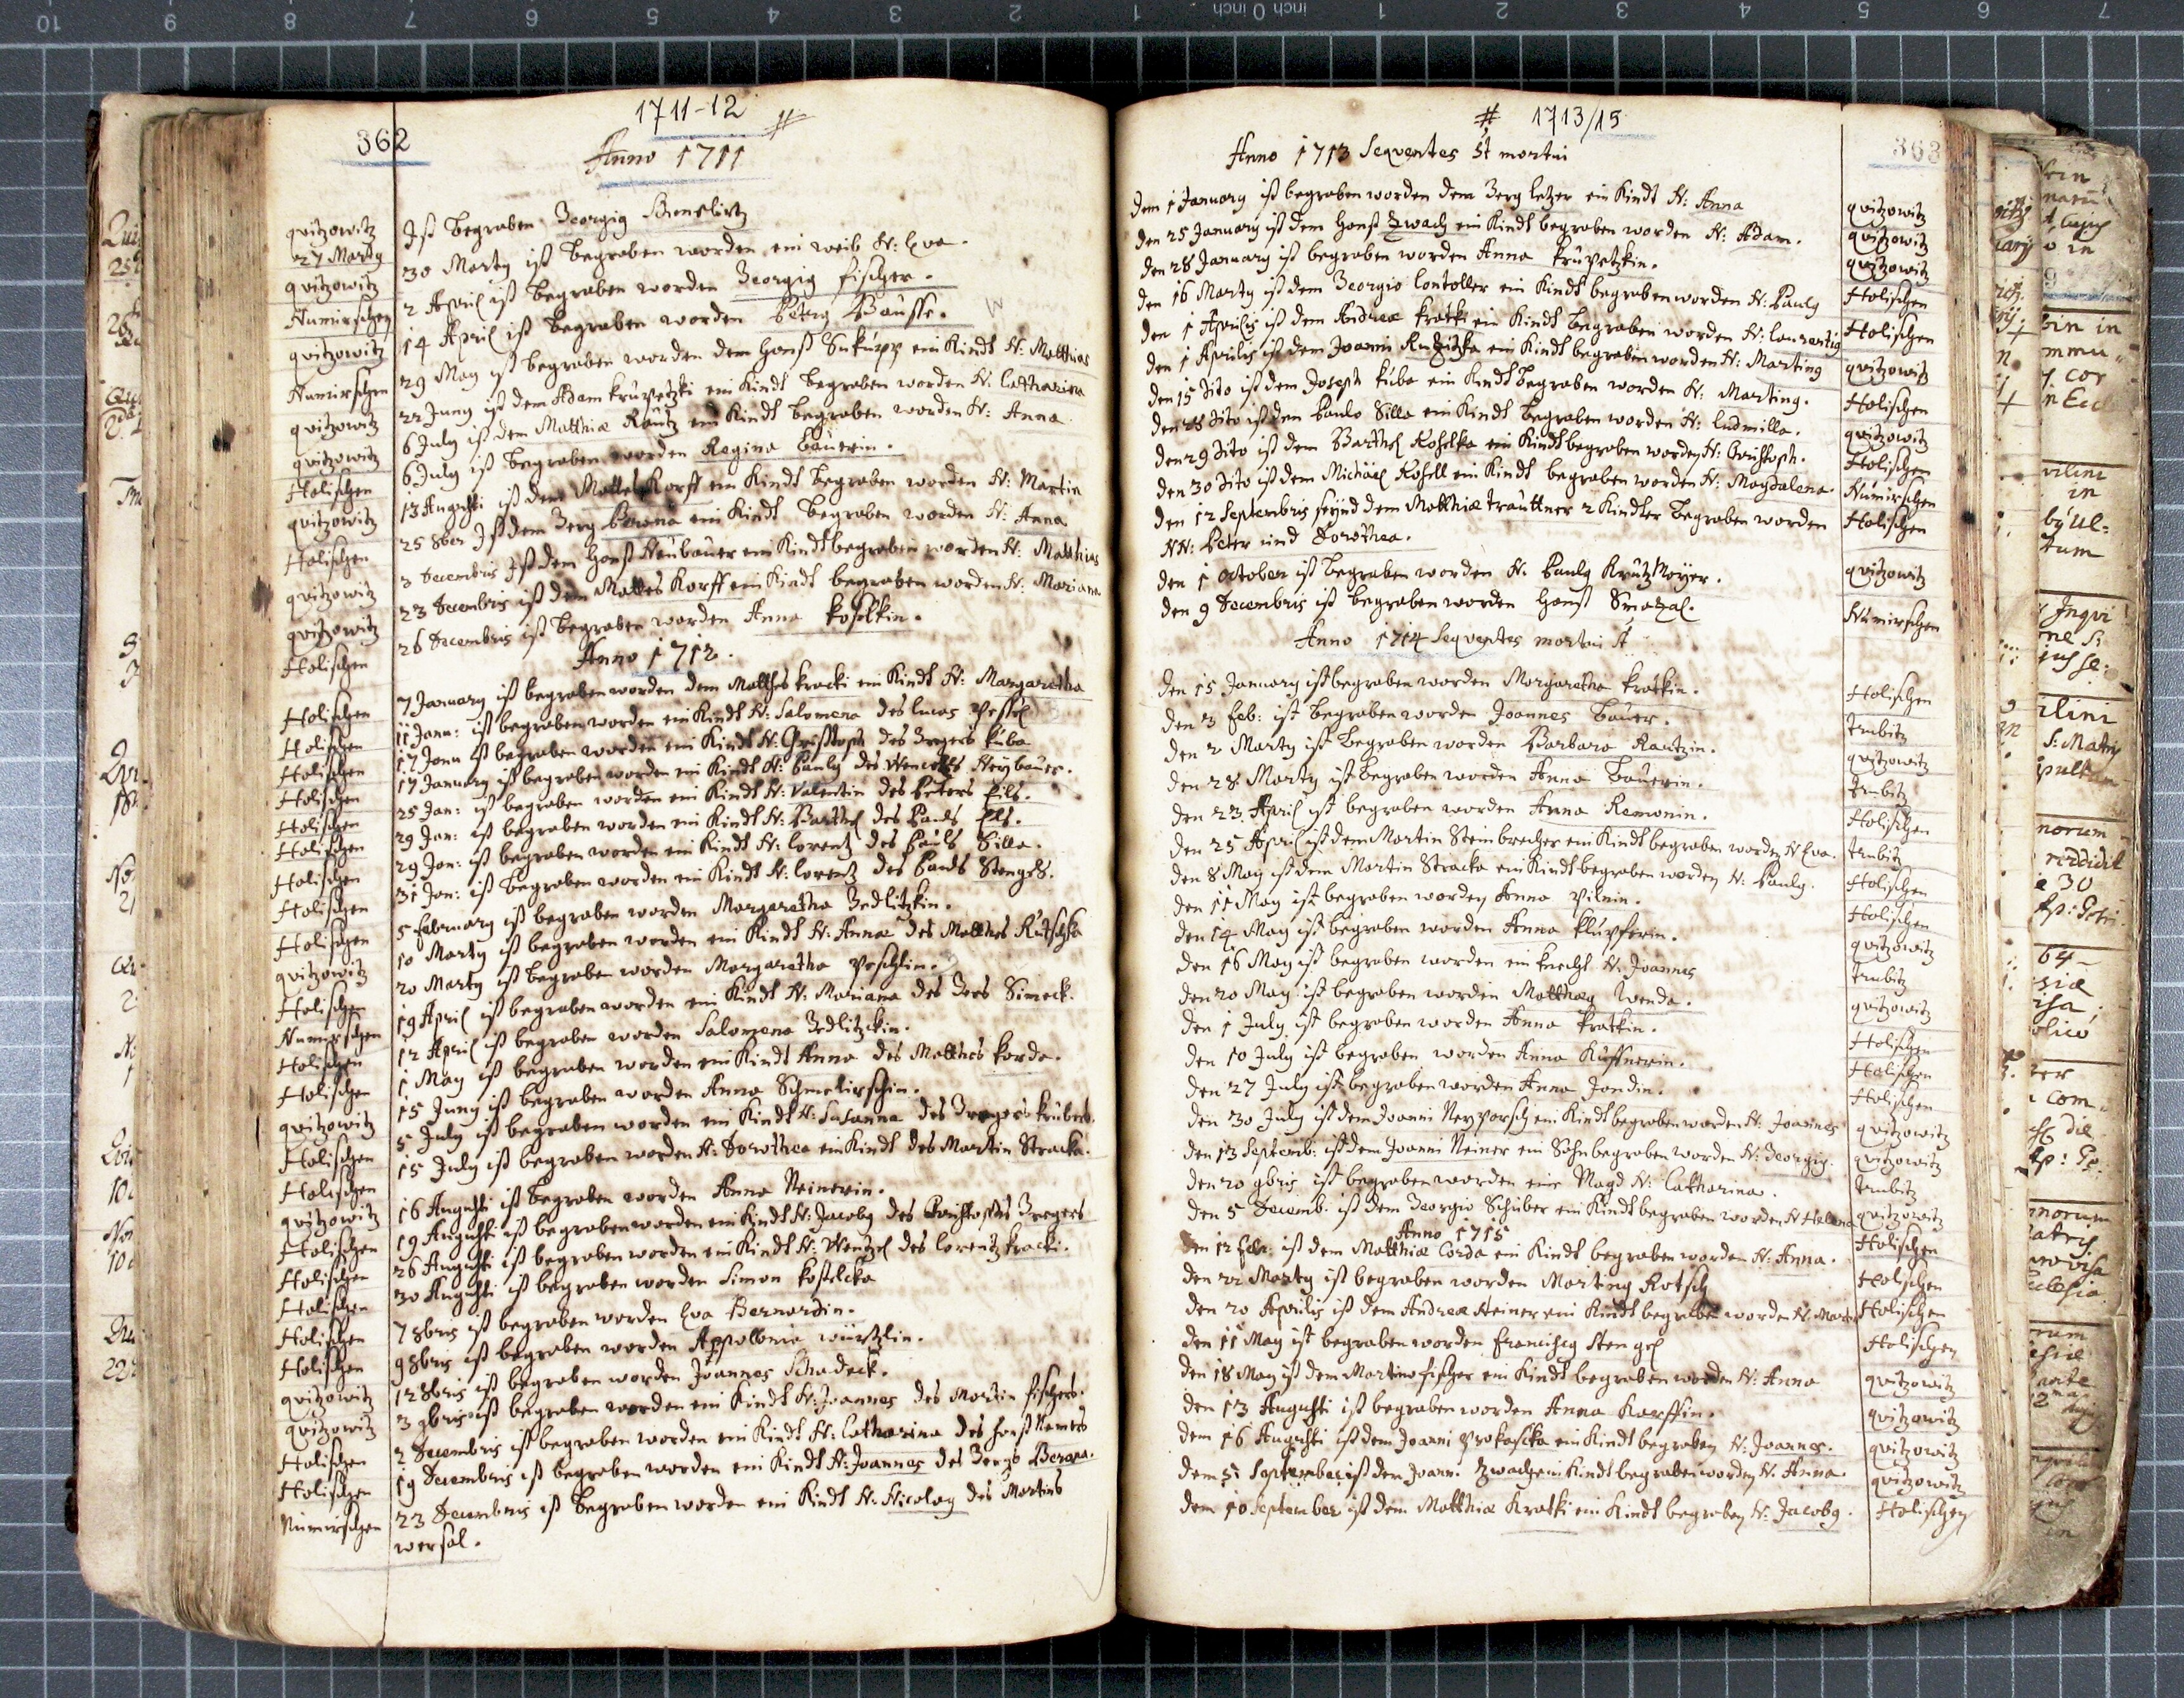 1711-12
362
Anno 1711
qvitzowitz Ist begraben Georgig
27 Marty
qvitzowitz 30 Marty ist begraben worden ein weib N: Eva.
Numirschen 2 April ist begraben worden Georgig fischer.
qvitzowitz 14 April ist begraben worden Peterg Bausse.
Numirschen 29 May ist begraben worden dem Hanß ein Kindt N: Matthias
qvitzowitz 22 Juny ist dem Adam krupetzki ein Kindt begraben worden N: Catharina
qvitzowitz 6 July ist dem Matthiæ Rautz ein Kindt begraben worden N: Anna
Holischen 6 July ist begraben worden Regina Bauerin.
qvitzowitz 13 Augusti ist dem Mattes Korff ein Kindt begraben worden N: Martin
Holischen 25 8ber Ist dem Gerg ein Kindt begraben worden N: Anna
qvitzowitz 3 Decembris Ist dem Hanß Neubauer ein Kindt begraben worden N: Matthias
qvitzowitz 23 Decembris ist dem Mattes Korff ein Kindt begraben worden N: Mariana
Holischen 26 Decembris ist begraben worden Anna koselkin.
Anno 1712.
Holischen 7 January ist begraben worden dem Matthes kracki ein Kindt N: Margaretha
Holischen 11 Janu: ist begraben worden ein Kindt N: Salomena des Lucas
Holischen 17 Janu ist begraben worden ein Kindt N: Christoph des Gregers kuba
Holischen 17 January ist begraben worden ein Kindt N: Paulg des Wencels Neybauer.
Holischen 25 Jan: ist begraben worden ein Kindt N: Valentin des Peters Pils.
Holischen 29 Jan: ist begraben worden ein Kindt N: Barthel des Pauls
Holischen 29 Jan: ist begraben worden ein Kindt N: Lorentz des Pauls Silla.
Holischen 31 Jan: ist begraben worden ein Kindt N: Lorentz des Pauls Stengls.
Holischen 5 February ist begraben worden Margaretha Zedlitzkin.
qvitzowitz 10 Marty ist begraben worden ein Kindt N: Annæ des Matthes
Holischen 20 Marty ist begraben worden Margaretha
Numirschen 19 April ist begraben worden ein Kindt N: Mariana des Simeck.
Holischen 12 April ist begraben worden Salomena Zedlitzkin.
Holischen 1 May ist begraben worden ein Kindt Anna des Matthes korda.
qvitzowitz 15 Juny ist begraben worden Anna Schmelirschin.
Holischen 5 July ist begraben worden ein Kindt N: Susanna des Gregers
Holischen 15 July ist begraben worden N: Dorothea ein Kindt des Martin Stracka.
qvitzowitz 16 Augusti ist begraben worden Anna Neinerin.
Holischen 19 Augusti ist begraben worden ein Kindt N: Jacobg des Christophs Gregers
Holischen 26 Augusti ist begraben worden ein Kindt N: Wentzel des Lorentz kracki.
Holischen 30 Augusti ist begraben worden Simon koselcka
Holischen 7 8bris ist begraben worden Eva Bernardin.
Holischen 9 8bris ist begraben worden Appollonia würtzlin.
qvitzowitz 12 8bris ist begraben worden Joannes Schadeck.
qvitzowitz 3 9bris ist begraben worden ein Kindt N: Joannes des Martin fischers.
Holischen 2 Decembris ist begraben worden ein Kindt N: Catharina des Hanß
Holischen 19 Decembris ist begraben worden ein Kindt N: Joannes des Gergs Berana.
Numirschen 23 Decembris ist begraben worden ein Kindt N: Nicolag des Martins
wersal.
# 1713/15
363
Anno 1713 Seqventes st mortui
dem 1 January ist begraben worden dem Gerg letzer ein Kindt N: Anna qvitzowitz
den 25 January ist dem Hanß Zwach ein Kindt begraben worden N: Adam. qvitzowitz
den 28 January ist begraben worden Anna krupetzkin. qvitzowitz
den 16 Marty ist dem Georgio Contoller ein Kindt begraben worden N: Paulg Holischen
den 1 Aprilis ist dem Andreæ kratki ein Kindt begraben worden N: Laurentig Holischen
den 1 Aprilis ist dem Joanni Ruzitzka ein Kindt begraben worden N: Marting qvitzowitz
den 15 Dito ist dem Joseph kuba ein Kindt begraben worden N: Marting. Holischen
den 28 Dito ist dem Paulo Silla ein Kindt begraben worden N: Ludmilla. qvitzowitz
den 29 Dito ist dem Barthel Koselka ein Kindt begraben worden N: Christoph. Holischen
den 30 Dito ist dem Michäel Kosell ein Kindt begraben worden N: Magdalena. Numirschen
den 12 Septembris seynd dem Matthiæ trauttner 2 Kindter begraben worden Holischen
NN: Peter und Dorothea.
den 1 October ist begraben worden N. Paulg KrutzMayer. qvitzowitz
den 9 Decembris ist begraben worden Hanß Smatzal. Numirschen
Anno 1714 Seqventes mortui st
den 15 January ist begraben worden Margaretha kratkin. Holischen
den 3 Feb: ist begraben worden Joannes Bauer. trubitz
den 2 Marty ist begraben worden Barbara Rautzin. qvitzowitz
den 28 Marty ist begraben worden Anna Bauerin. trubitz
den 23 April ist begraben worden Anna Remonin. Holischen
den 25 April ist dem Martin Steinbrecher ein Kindt begraben worden N Eva. trubitz
den 8 May ist dem Martin Stracka ein Kindt begraben worden N: Paulg. Holischen
den 11 May ist begraben worden Anna Pilnin. Holischen
den 14 May ist begraben worden Anna klupferin. qvitzowitz
den 16 May ist begraben worden ein knecht N: Joannes trubitz
den 20 May ist begraben worden Matthæg Wenda. qvitzowitz
den 1 July ist begraben worden Anna kratkin. Holischen
den 10 July ist begraben worden Anna Küffnerin. Holischen
den 27 July ist begraben worden Anna Jandin. Holischen
den 30 July ist dem Joanni ein Kindt begraben worden N: Joannes qvitzowitz
den 13 Septemb: ist dem Joanni Neiner ein Sohn begraben worden N: Georgig. qvitzowitz
den 20 9bris ist begraben worden eine Magd N: Catharina. trubitz
den 5 Decemb: ist dem Georgio Schuber ein Kindt begraben worden N Helena qvitzowitz
Anno 1715
den 12 Feb: ist dem Matthiæ Corda ein Kindt begraben worden N: Anna. Holischen
den 22 Marty ist begraben worden Marting Rotsch Holschen
den 20 Aprilis ist dem Andreæ Steiner ein Kindt begraben worden N: Holischen
den 11 May ist begraben worden Franciscg Stengel Holischen
den 18 May ist dem Martino fischer ein Kindt begraben worden N: Anna qvitzowitz
den 13 Augusti ist begraben worden Anna Karffin. qvitzowitz
dem 16 Augusti ist dem Joanni Prokascka ein Kindt begraben N: Joannes. qvitzowitz
dem 5 September ist dem Joann. Zwach ein Kindt begraben worden N. Anna. qvitzowitz
dem 10 September ist dem Matthiæ Kratki ein Kindt begraben N: Jacobg. Holischen